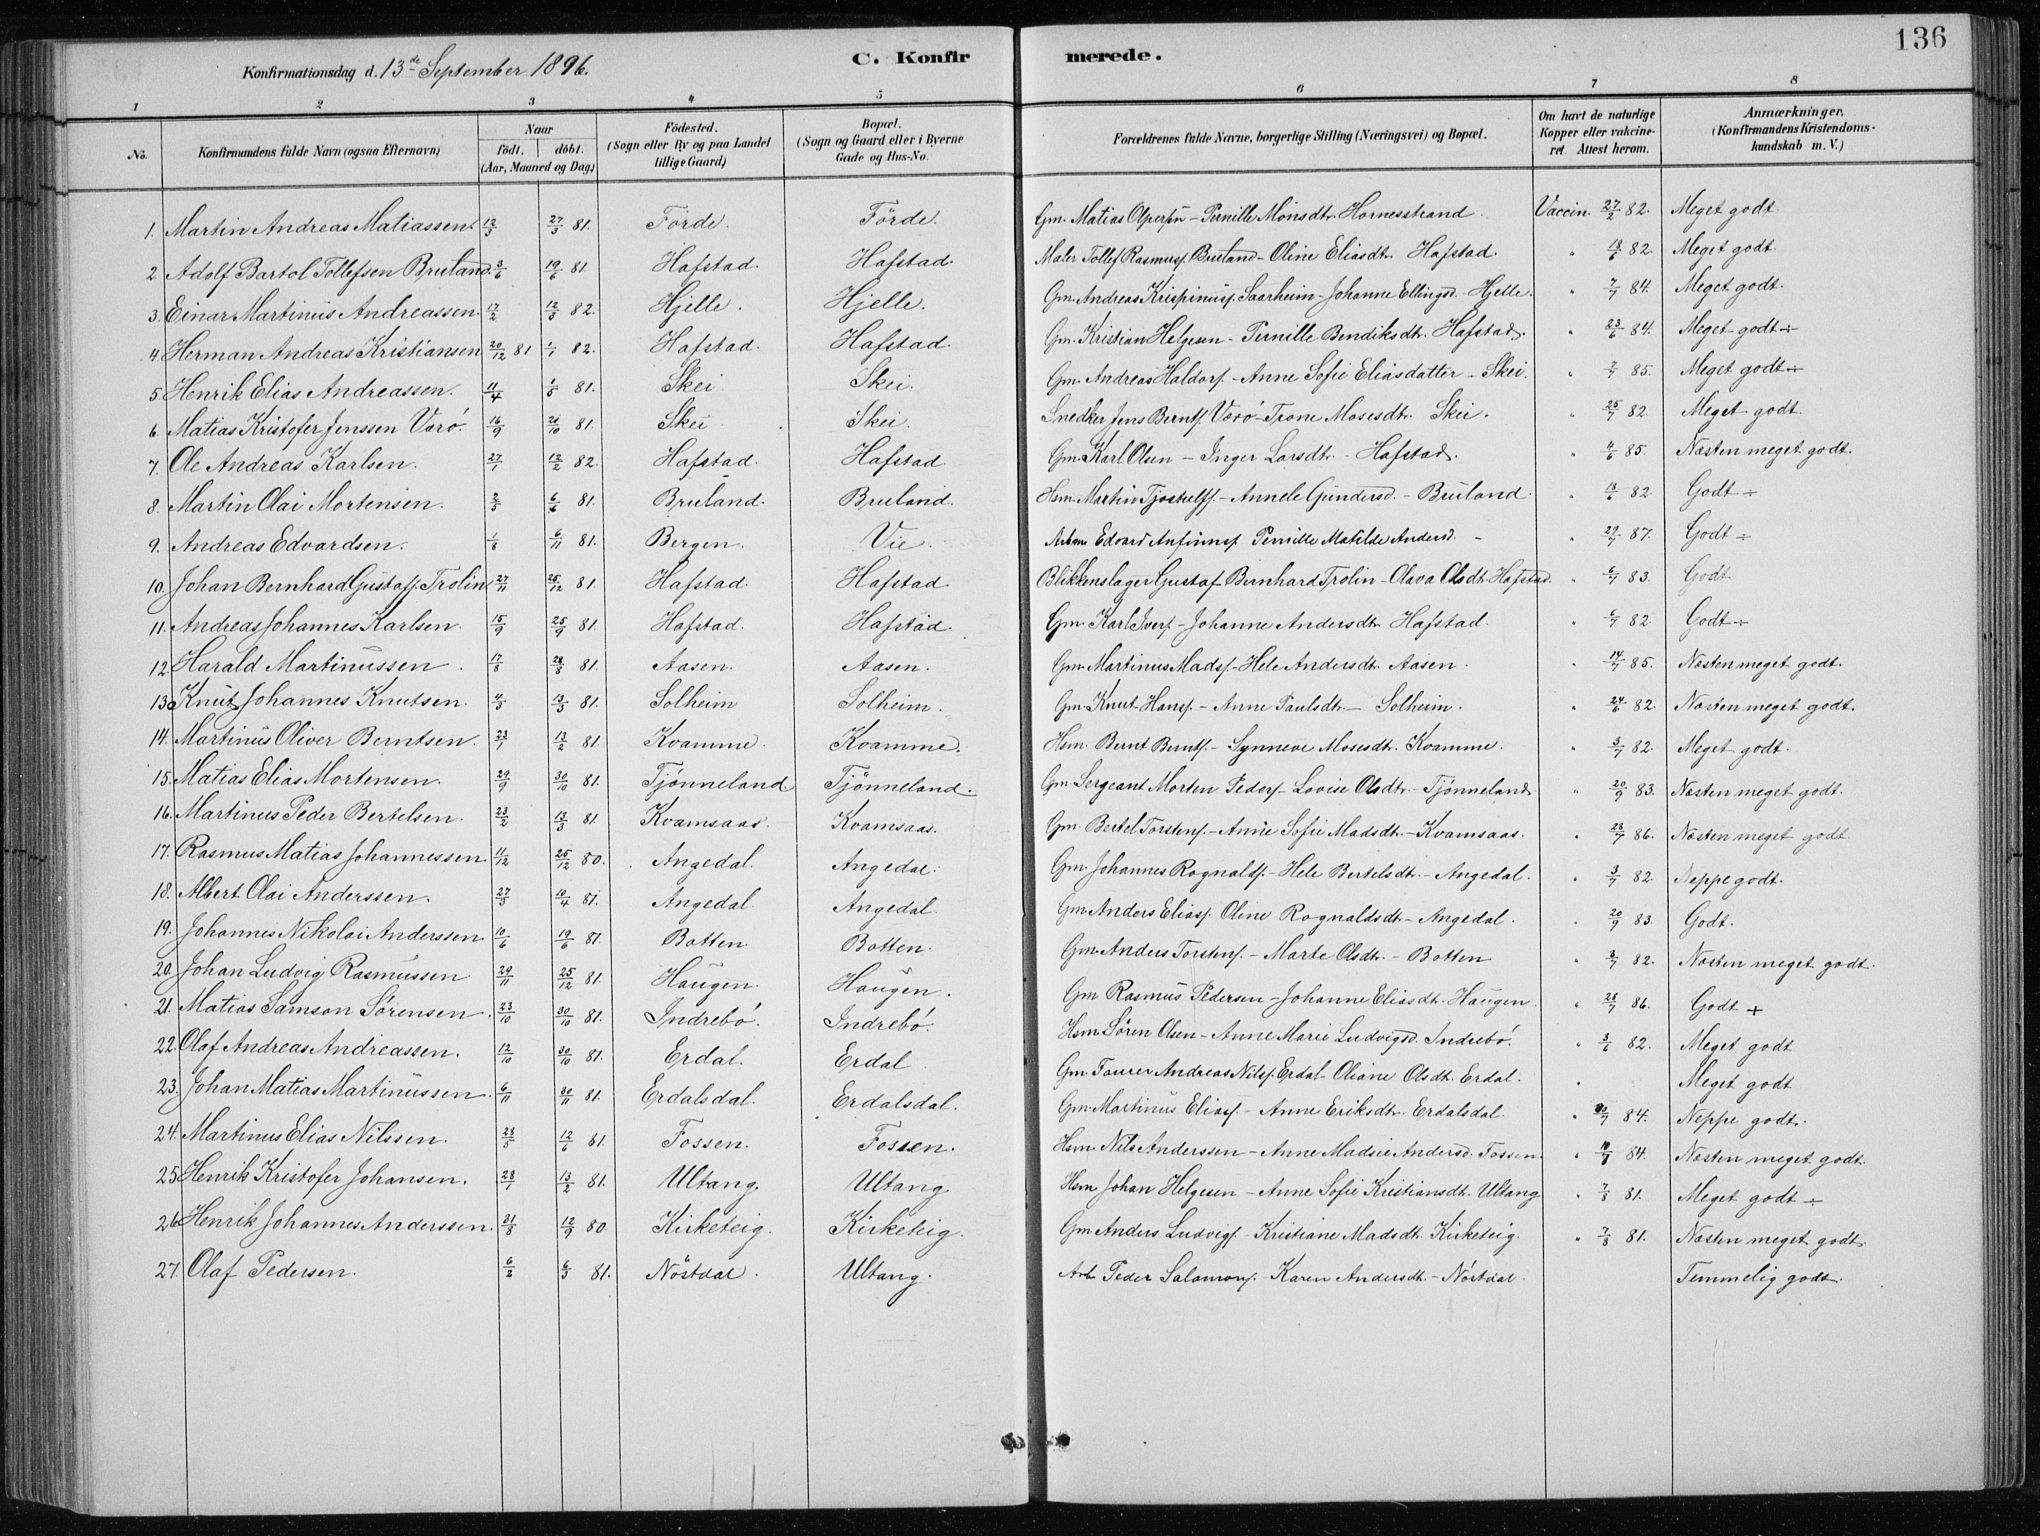 136
Konfirmationsdag d. 13de September 1896.
C. Konfirmerede.
1 2 3 4 5 6 7 8
No. Konfirmandens fulde Navn (ogsaa Efternavn) Naar födt. döbt. (Aar, Maaned og Dag) Födested. (Sogn eller By og paa Landet tillige Gaard) Bopæl. (Sogn og Gaard eller i Byerne Gade og Hus-No. Forældrenes fulde Navne, borgerlige Stilling (Næringsvei) og Bopæl. Om havt de naturlige Kopper eller vakcineret. Attest herom. Anmærkninger. (Konfirmandens Kristendomskundskab m. V.)
1. Martin Andreas Matiassen 12/3 27/3 81. Förde. Förde. Gm. Matias - Pernille Monsdtr. Hornesstrand. Vaccin. 27/2 82. Meget godt.
2 Adolf Bartol Tollefsen Bruland. 3/6 19/6 81. Hafstad. Hafstad. Maler Tollef Rasmusf. Bruland - Oline Eliasdtr. Hafstad. " 82. Meget godt.
3. Einar Martinus Andreassen. 17/2 12/3 82. Hjelle. Hjelle. Gm. Andreas Krispinusf. Saarheim - Johanne Ellingsd. - Hjelle. " 7/7 84. Meget godt.
4 Herman Andreas Kristiansen 20/12 81 1/1 82. Hafstad. Hafstad. Gm. Kristian Helgesen - Pernille Bendiksdtr. Hafstad. " 23/6 84. Meget godt ÷
5 Henrik Elias Andreassen. 11/4 1/5 81. Skei Skei. Gm. Andreas Haldorf. - Anne Sofie Eliasdatter - Skei. " 7/7 85. Meget godt ÷
6. Matias Kristofer Jenssen Varö. 16/9 81. Skei Skei. Snedker Jens Berntf. Varö - Trone Mosesdtr. Skei. " 25/7 82. Meget godt.
7. Ole Andreas Karlsen. 27/1 12/2 82. Hafstad. Hafstad Gm. Karl Olsen - Inger Larsdtr. - Hafstad. " 4/6 85. Næsten meget godt.
8. Martin Olai Mortensen. 6/6 81. Bruland. Bruland. Hsm. Martin - Annele Gundersd. - Bruland. " 13/6 82. Godt ÷
9. Andreas Edvardsen. 6/11 81. Bergen. Vie. Arbm. Edvard Anfinnsf. Pernille Matilde Andersd. - " 29/7 87. Godt ÷
10. Johan Bernhard Gustaff. Trolin. 27/11 25/12 81. Hafstad. Hafstad. Blikkenslager Gustaf Bernhard Trolin - Olava Olsdtr. Hafstad. " 6/7 83. Godt.
11. Andreas Johannes Karlsen. 15/9 25/9 81. Hafstad. Hafstad. Gm. Karl Iverf. - Johanne Andersdtr. Hafstad. " 6/7 82. Godt ÷
12. Harald Martinussen. 17/8 28/8 81. Aasen. Aasen. Gm. Martinus Madsf. - Hele Andersdtr. Aasen. " 14/7 85. Næsten meget godt.
13. Knut Johannes Knutsen. 4/3 13/3 81. Solheim Solheim. Gm. Knut Hansf. - Anne Paulsdtr. - Solheim. " 24/6 82. Næsten meget godt.
14. Martinus Oliver Berntsen. 23/1 13/2 81. Kvamme. Kvamme. Hsm. Bernt Berntf. - Synneve Mosesdtr. Kvamme. " 3/7 82. Meget godt.
15. Matias Elias Mortensen. 29/9 30/10 81. Tjönneland. Tjönneland. Gm. Sergeant Morten Pedersf. Lovise Olsdtr. - Tjönneland " 20/9 83. Næsten meget godt.
16. Martinus Peder Bertelsen. 23/2 13/3 81. Kvamsaas. Kvamsaas. Gm. Bertel Torstenf. - Anne Sofie Madsdtr. - Kvamsaas. " 28/7 86. Næsten meget godt.
17. Rasmus Matias Johannessen 11/12 25/12 80. Angedal. Angedal. Gm. Johannes Rognaldf. - Hele Bertelsdtr. - Angedal. " 3/7 82. Neppe godt.
18. Albert Olai Anderssen. 27/3 10/4 81. Angedal Angedal. Gm. Anders Eliasf. Oline Rognaldsdtr. - Angedal. " 20/9 83. Godt.
19. Johannes Nikolai Anderssen. 10/6 19/6 81. Botten Botten. Gm. Anders Torstenf. - Marte Olsdtr. - Botten " 82. Næsten meget godt.
20. Johan Ludvig Rasmussen 29/11 25/12 81. Haugen. Haugen. Gm. Rasmus Pedersen - Johanne Eliasdtr. Haugen. " 28/7 86. Godt +
21. Matias Samson Sörensen. 23/10 30/10 81. Indrebö. Indrebö. Hsm. Sören Olsen - Anne Marie Ludvigsd. Indrebö. " 3/6 82. Meget godt
22. Olaf Andreas Andreassen. 12/10 30/10 81. Erdal. Erdal Gm. Andreas Nilsf. Erdal - Oliane Olsdtr. Erdal. " Meget godt
23. Johan Matias Martinussen. 6/11 81. Erdalsdal. Erdalsdal. Gm. Martinus Eliasf. - Anne Eriksdtr. Erdalsdal. " 84. Neppe godt.
24. Martinus Elias Nilssen. 28/5 12/6 81. Fossen. Fossen. Hsm. Nils Anderssen - Anne Madsie Andersd. Fossen. " 84. Næsten meget godt.
25. Henrik Kristofer Johansen. 28/1 13/2 81. Ultang Ultang. Hsm. Johan Helgesen - Anne Sofie Kristiansdtr. Ultang " 7/8 81. Meget godt ÷
26. Henrik Johannes Anderssen. 21/8 12/9 80 Kirketeig. Kirketeig. Gm. Anders Ludvigf. - Kristiane Madsdtr. Kirketeig. " 7/8 81. Næsten meget godt.
27. Olaf Pedersen. 6/2 6/3 81. Nöstdal. Ultang. Arb. Peder Salomonf. Karen Andersdtr. - Nöstdal. Temmelig godt.